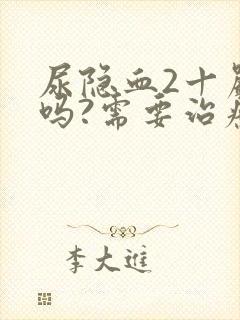 尿隐血2十
吗?需要治
李大進